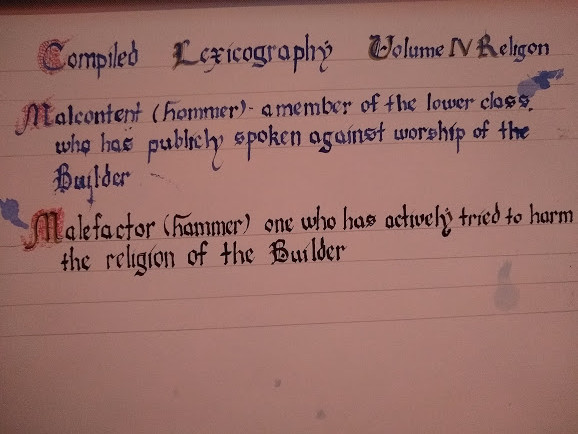 Compiled Lexicography Volume IV Religon
Malcontent (hammer)- a member of the lower class,
who has publicly spoken against worship of the
Builder
Malefactor (hammer) one who has actively tried to harm
the religion of the Builder